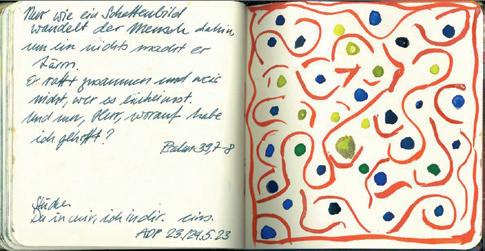 Nur wie ein Schattenbild
wandelt der Mensch dahin
um ein nichts macht er
Lärm.
Er rafft zusammen und weiß
nicht, wer es einheimst.
Und nun, Herr, worauf habe
ich gehofft?
Psalm 39,7-8
Du in mir, ich in dir. eins.
23/24.5.23